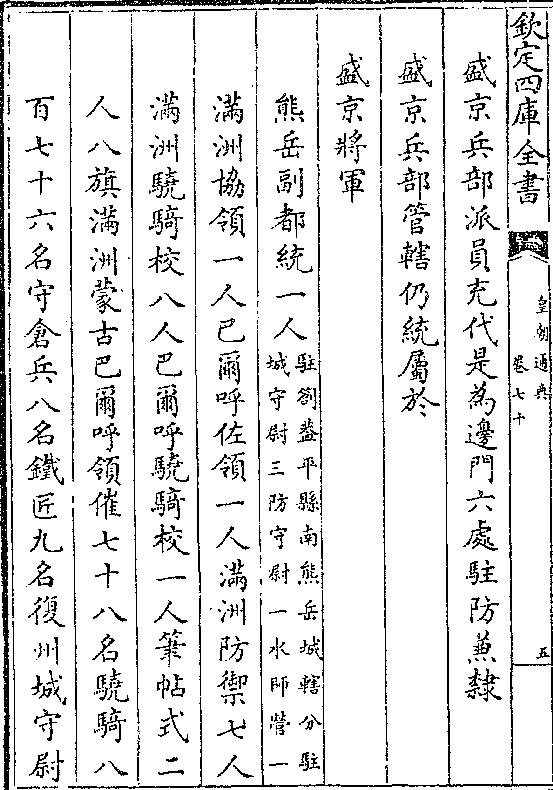 欽定四庫全書
皇朝通典
卷七十
五
盛京兵部派員充代是為邊門六處駐防兼隸
盛京兵部管轄仍統屬於
盛京將軍
熊岳副都統一人駐劄蓋平縣南熊岳城轄分駐
城守尉三防守尉一水師營一
滿洲協領一人巴爾呼佐領一人滿洲防禦七人
滿洲驍騎校八人巴爾呼驍騎校一人筆帖式二
人八旗滿洲蒙古巴爾呼領催七十八名驍騎八
百七十六名守倉兵八名鐵匠九名復州城守尉